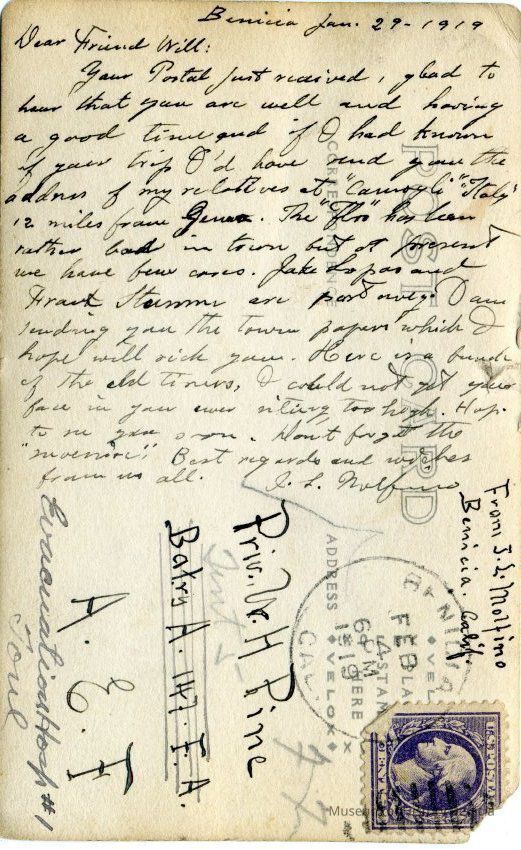 Benicia Jan. 29-1919
Dear Friend Will:
Your Postal just received, glad to
hear that you are well and having
a good time and if I had known
of your trip I'd have send you the
address of my relatives at "Camogli" "Italy"
12 miles from Genoa. The "Flu" has been
rather bad in town but at present
we have few cases. Jake Lopas and
Frank Stumm are past away I am
sending you the town papers which I
hope will rich you. Here is a bunch
of the old timers, I could not get your
face in you over sitting too high. Hop
to see you soon. Dont forget the
"suvenire". Best regards and wishes
from us all. J. L. Molfino
POST CARD
CORRESPONDENCE
ADDRESS
From J. L. Molfino
Benicia. Calif.
Priv. W. H Pine
Batry A. 147. F. A.
A. E. F
Evacuation Hosp #1
Toul
BENICIA
FEB
4
6 PM
1919
CAL.
PLACE
STAMP
HERE
VELOX